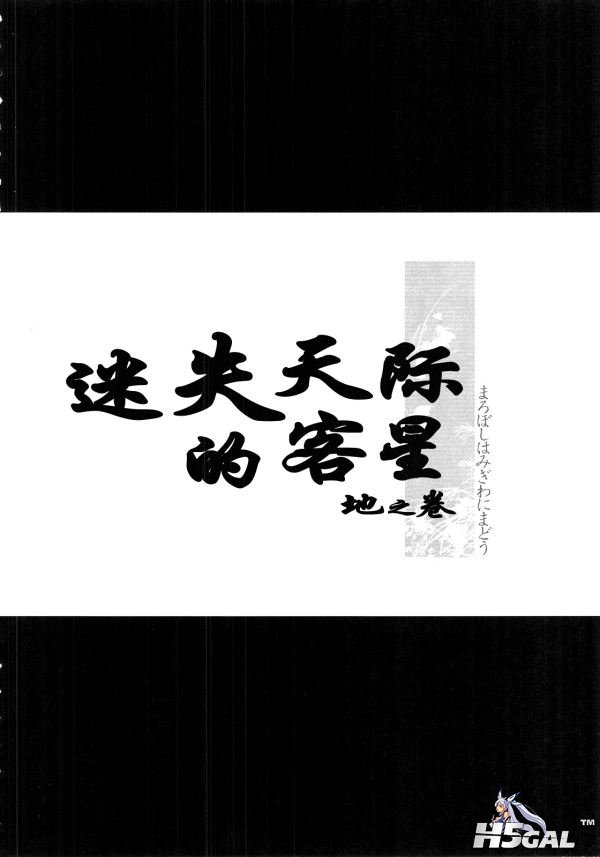 迷失天际
的客星
地之卷
まろぼしはみぎわにまどう
H5GAL
TM